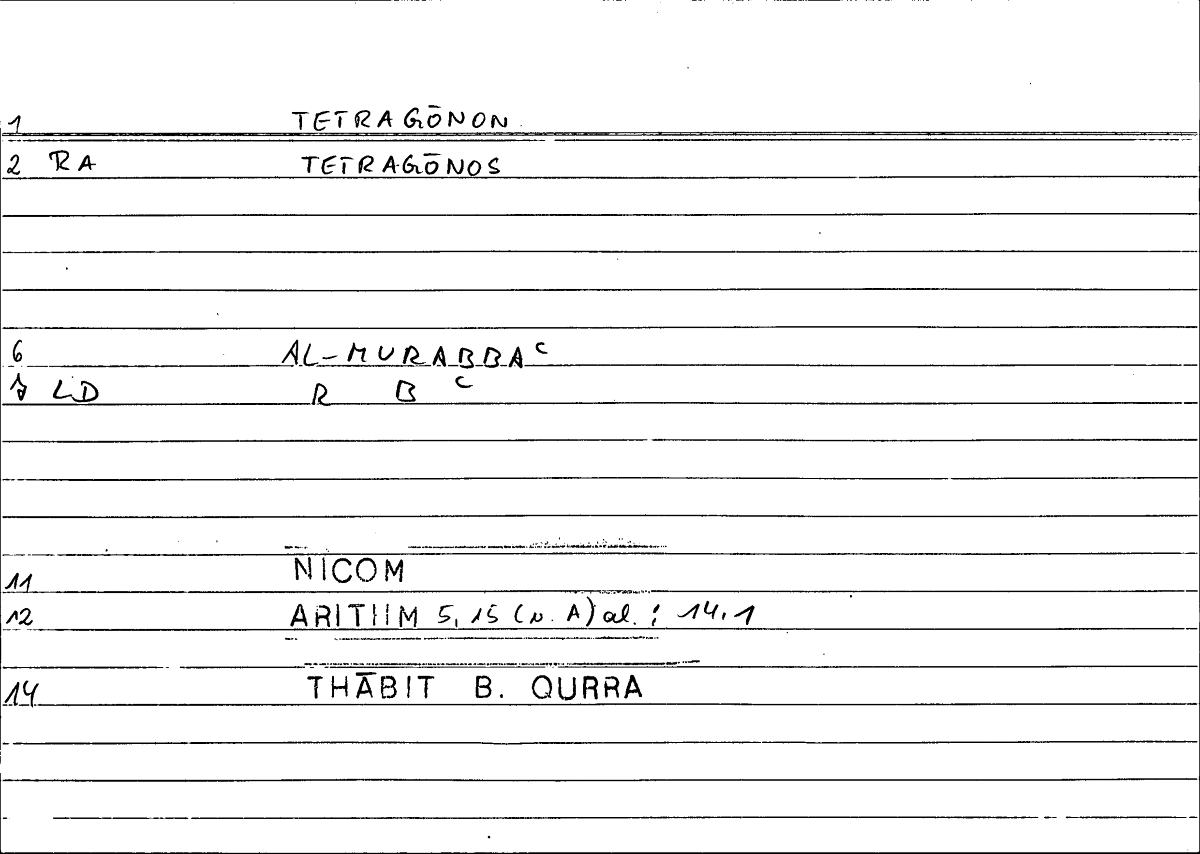 1 TETRAGŌNON
2 RA TETRAGŌNOS
6 AL-MURABBAᶜ
7 LD R B ᶜ
11 NICOM
12 ARITIIM 5,15 (n. A) al. ; 14,1
14 THĀBIT B. QURRA